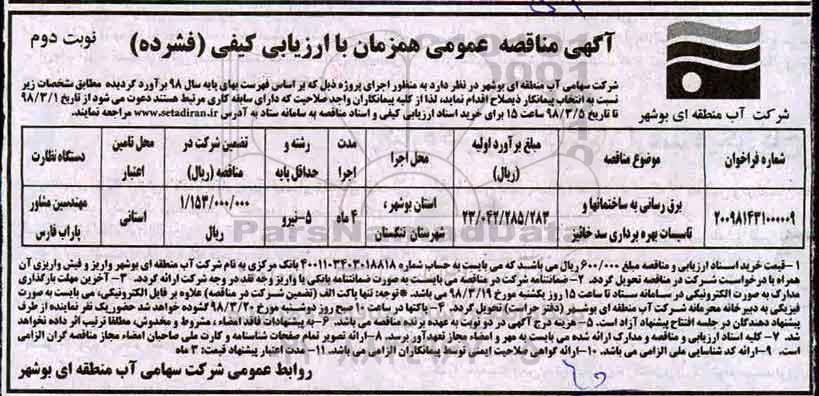 آگهی مناقصه عمومی همزمان با ارزیابی کیفی (فشرده)
نوبت دوم
شرکت آب منطقه ای بوشهر
شرکت سهامی آب منطقه ای بوشهر در نظر دارد به منظور اجرای پروژه ذیل که بر اساس فهرست بهای پایه سال ۹۸ برآورد گردیده مطابق مشخصات زیر
نسبت به انتخاب پیمانکار ذیصلاح اقدام نماید، لذا از کلیه پیمانکاران واجد صلاحیت که دارای سابقه کاری مرتبط هستند دعوت می شود از تاریخ ۹۸/۳/۱
تا تاریخ ۹۸/۳/۵ ساعت ۱۵ برای خرید اسناد ارزیابی کیفی و اسناد مناقصه به سامانه ستاد به آدرس www.setadiran.ir مراجعه نمایند.
شماره فراخوان | موضوع مناقصه | مبلغ برآورد اولیه (ریال) | محل اجرا | مدت اجرا | رشته و حداقل پایه | تضمین شرکت در مناقصه (ریال) | محل تامین اعتبار | دستگاه نظارت
۲۰۰۹۸۱۴۳۱۰۰۰۰۰۹ | برق رسانی به ساختمانها و تاسیسات بهره برداری سد خائیز | ۲۳/۰۴۲/۲۸۵/۲۸۳ | استان بوشهر، شهرستان تنگستان | ۴ ماه | ۵-نیرو | ۱/۱۵۳/۰۰۰/۰۰۰ ریال | استانی | مهندسین مشاور پاراب فارس
۱-قیمت خرید اسناد ارزیابی و مناقصه مبلغ ۶۰۰/۰۰۰ ریال می باشد که می بایست به حساب شماره ۴۰۰۱۱۰۳۴۰۳۰۱۸۸۱۸ بانک مرکزی به نام شرکت آب منطقه ای بوشهر واریز و فیش واریزی آن
همراه با درخواست شرکت در مناقصه تحویل گردد. ۲-ضمانتنامه شرکت در مناقصه می بایست به صورت ضمانتنامه بانکی یا واریز وجه نقد در وجه شرکت ارائه گردد. ۳-آخرین مهلت بارگذاری
مدارک به صورت الکترونیکی در سامانه ستاد تا ساعت ۱۵ روز یکشنبه مورخ ۹۸/۳/۱۹ می باشد. *توجه: تنها پاکت الف (تضمین شرکت در مناقصه) علاوه بر فایل الکترونیکی، می بایست به صورت
فیزیکی به دبیر خانه محرمانه شرکت آب منطقه ای بوشهر (دفتر حراست) تحویل گردد. ۴- پاکتها در ساعت ۹ صبح روز دوشنبه مورخ ۹۸/۳/۲۰ گشوده خواهد شد حضور یک نفر نماینده از طرف
پیشنهاد دهندگان در جلسه افتتاح پیشنهاد آزاد است. ۵- هزینه درج آگهی در دو نوبت به عهده برنده مناقصه می باشد. ۶-به پیشنهادات فاقد امضاء، مشروط و مخدوش، مطلقا ترتیب اثر داده نخواهد
شد. ۷- کلیه اسناد ارزیابی و مناقصه و مدارک ارائه شده می بایست به مهر و امضاء مجاز تعهدآور برسد. ۸-ارائه تصویر تمام صفحات شناسنامه و کارت ملی صاحبان امضاء مجاز مناقصه گران الزامی
است. ۹-ارائه کد شناسایی ملی الزامی می باشد. ۱۰-ارائه گواهی صلاحیت ایمنی توسط پیمانکاران الزامی می باشد. ۱۱- مدت اعتبار پیشنهاد قیمت: ۳ ماه
روابط عمومی شرکت سهامی آب منطقه ای بوشهر
ParsNamadData